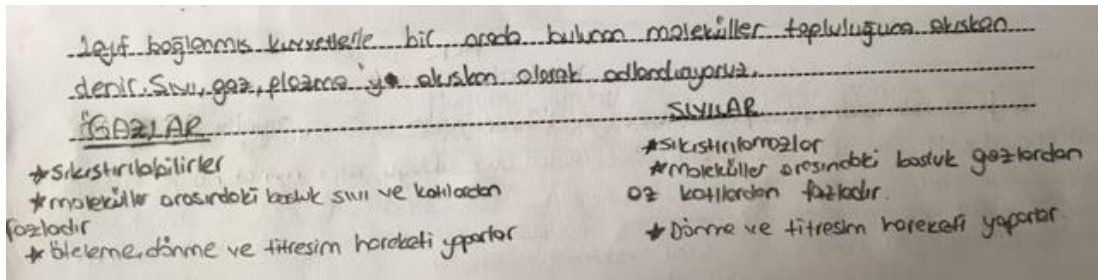 Zayıf bağlanmış kuvvetlerle bir arada bulunan moleküller topluluğuna akışkan
denir. Sıvı, gaz, plazma'yı akışkan olarak adlandırıyoruz.
GAZLAR
★sıkıştırılabilirler
★moleküller arasındaki boşluk sıvı ve katılardan
fazladır
★öteleme, dönme ve titreşim hareketi yaparlar
SIVILAR
★sıkıştırılamazlar
★moleküller arasındaki boşluk gazlardan
az katılardan fazladır.
★Dönme ve titresim hareketi yaparlar.